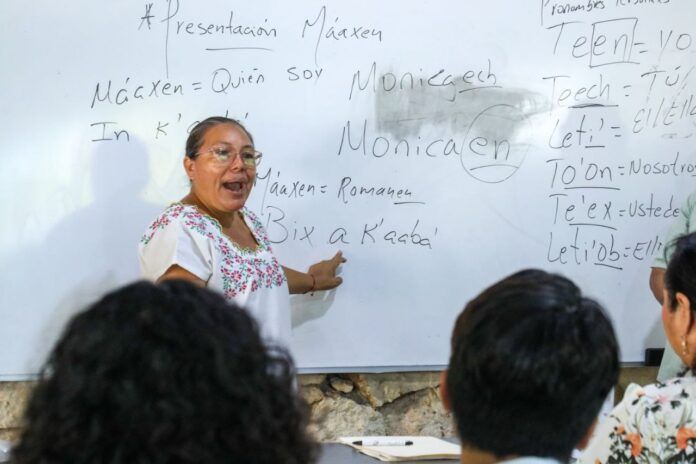 *Presentación Máaxen
Máaxen = Quién soy
In k'aaba'
Máaxen = Romanen
Bix a k'aabá
Monicaech
Monicaen
Pronombres Personales
Teen = yo
Teech = Tú
Leti' = Él/Ella
To'on = Nosotros
Te'ex = Ustedes
Leti'ob = Ell